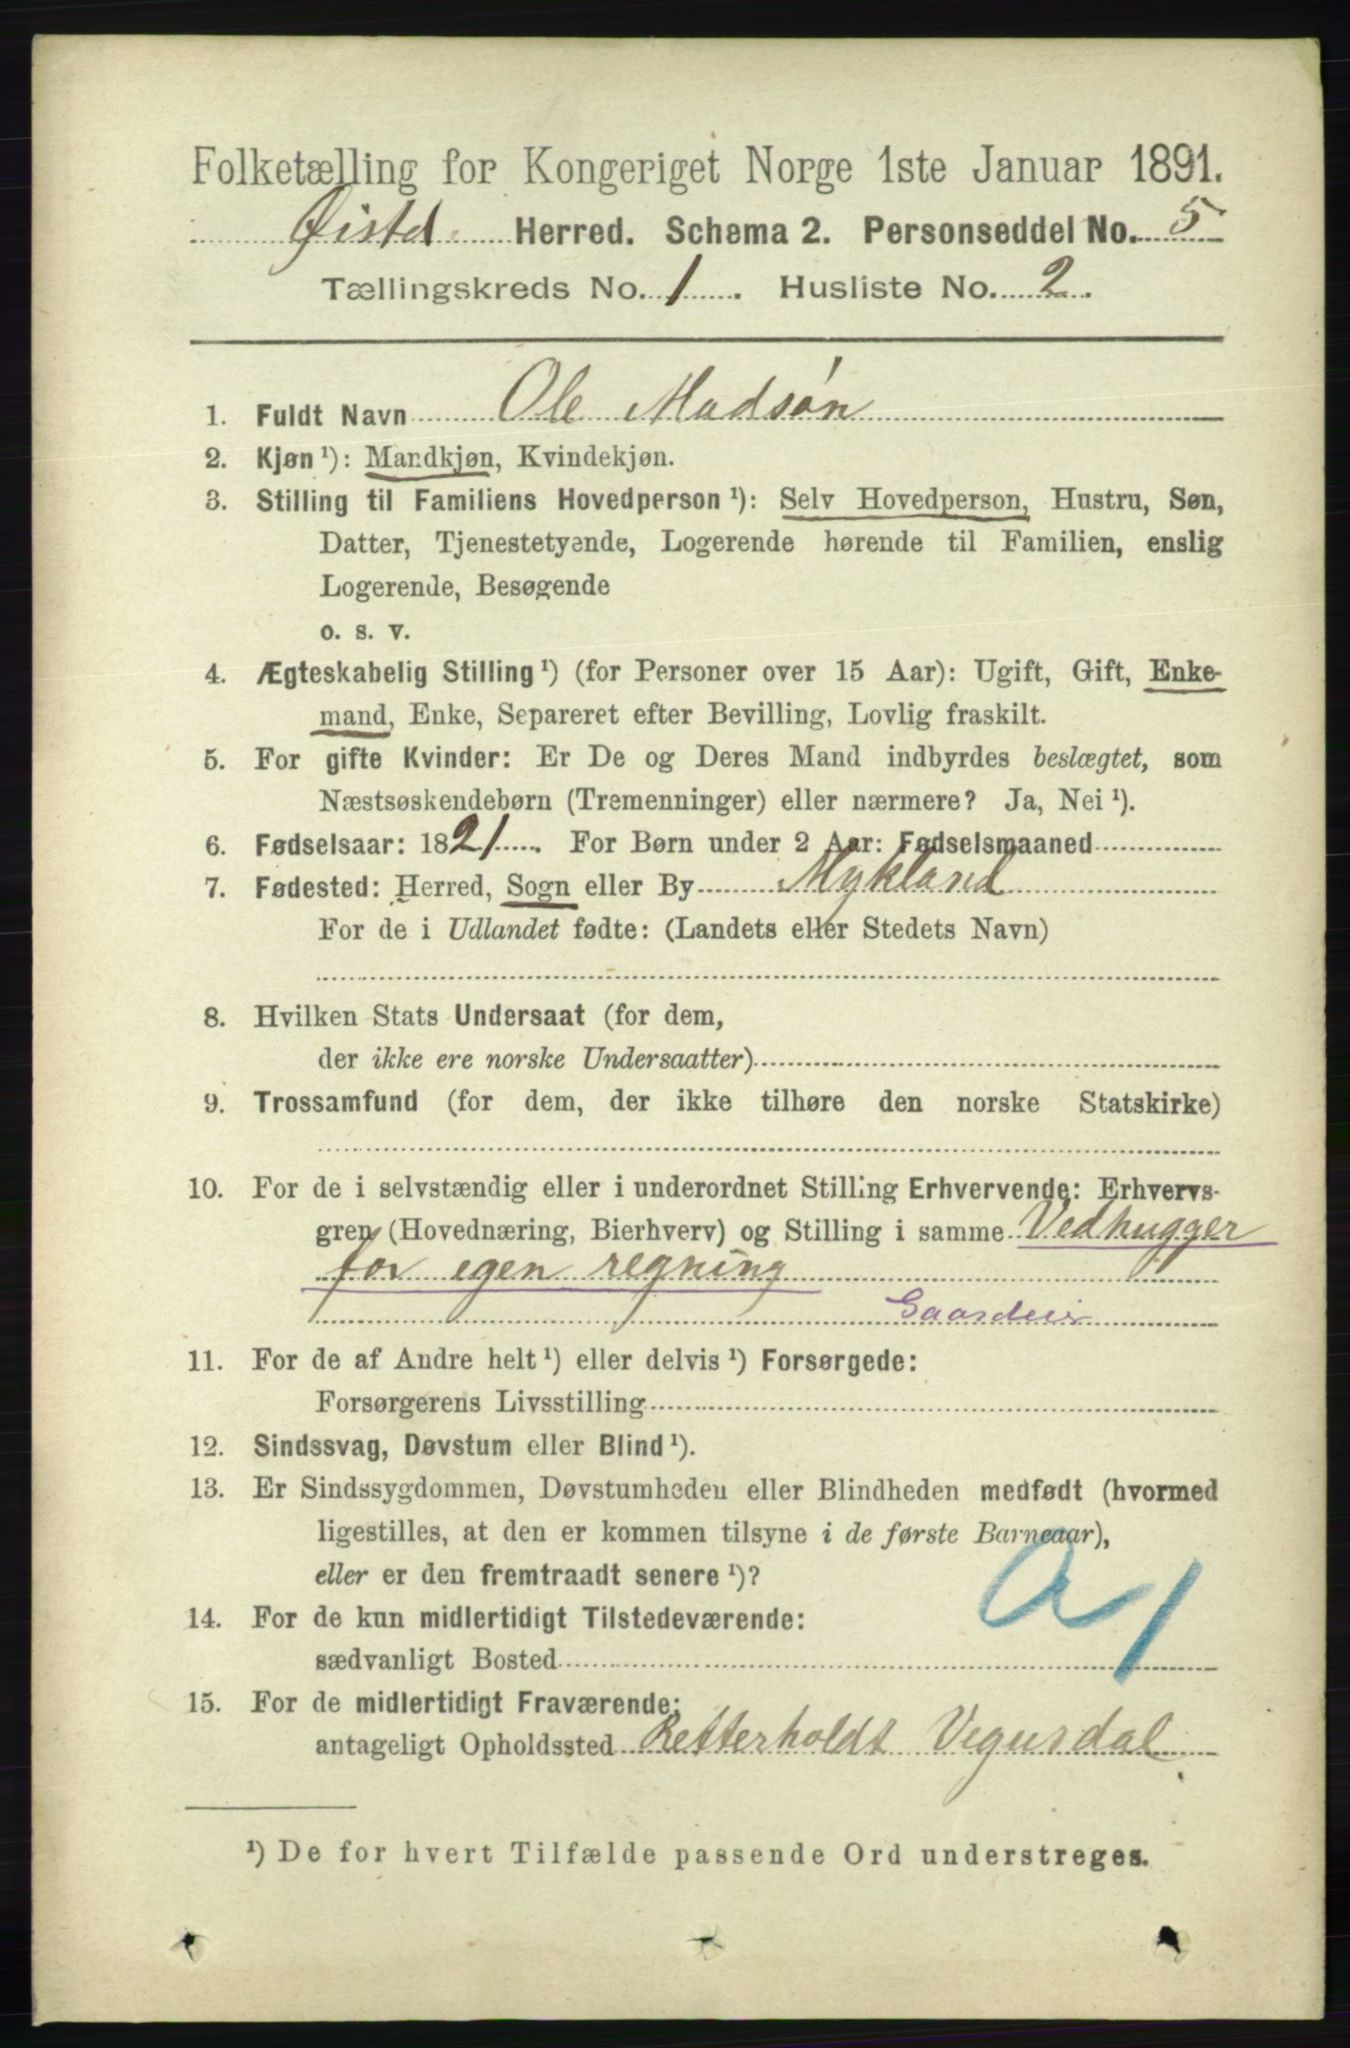 Folketælling for Kongeriget Norge 1ste Januar 1891.
Øistd Herred. Schema 2. Personseddel No. 5
Tællingskreds No. 1. Husliste No. 2.
1. Fuldt Navn Ole Madsøn
2. Kjøn ¹): Mandkjøn, Kvindekjøn.
3. Stilling til Familiens Hovedperson ¹): Selv Hovedperson, Hustru, Søn,
Datter, Tjenestetyende, Logerende hørende til Familien, enslig
Logerende, Besøgende
o. s. v.
4. Ægteskabelig Stilling ¹) (for Personer over 15 Aar): Ugift, Gift, Enke-
mand, Enke, Separeret efter Bevilling, Lovlig fraskilt.
5. For gifte Kvinder: Er De og Deres Mand indbyrdes beslægtet, som
Næstsøskendebørn (Tremenninger) eller nærmere? Ja, Nei ¹).
6. Fødselsaar: 1821. For Børn under 2 Aar: Fødselsmaaned
7. Fødested: Herred, Sogn eller By Mykland
For de i Udlandet fødte: (Landets eller Stedets Navn)
8. Hvilken Stats Undersaat (for dem,
der ikke ere norske Undersaatter)
9. Trossamfund (for dem, der ikke tilhøre den norske Statskirke)
10. For de i selvstændig eller i underordnet Stilling Erhvervende: Erhvervs-
gren (Hovednæring, Bierhverv) og Stilling i samme Vedhugger
for egen regning
11. For de af Andre helt ¹) eller delvis ¹) Forsørgede:
Forsørgerens Livsstilling
12. Sindssvag, Døvstum eller Blind ¹).
13. Er Sindssygdommen, Døvstumheden eller Blindheden medfødt (hvormed
ligestilles, at den er kommen tilsyne i de første Barneaar),
eller er den fremtraadt senere ¹)?
14. For de kun midlertidigt Tilstedeværende:
sædvanligt Bosted
15. For de midlertidigt Fraværende:
antageligt Opholdssted Retterholdt Vegusdal
¹) De for hvert Tilfælde passende Ord understreges.